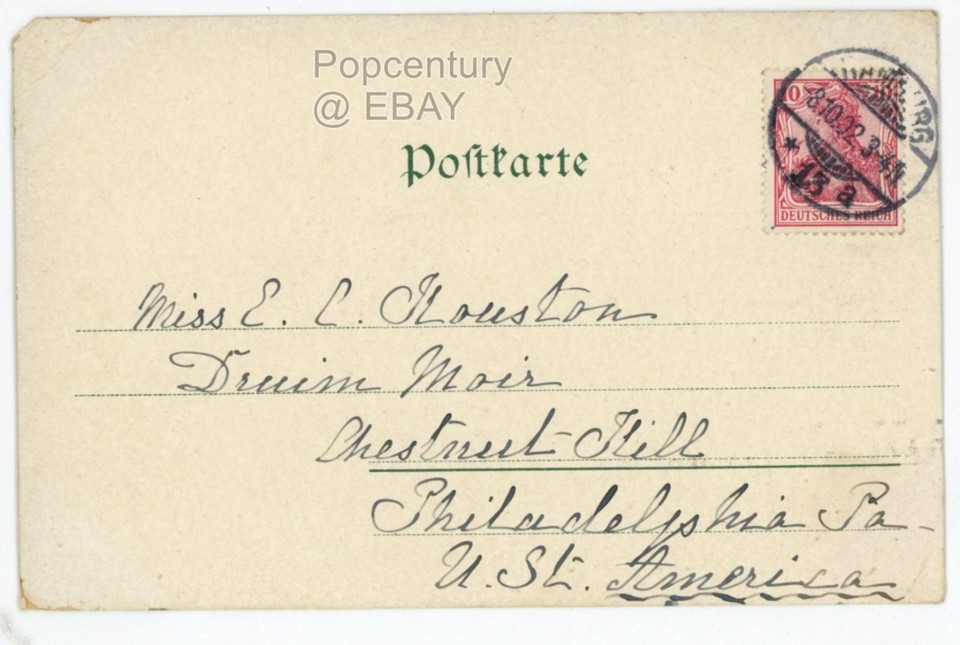 Popcentury
@ EBAY
Postkarte
HAMBURG
-8.10.02.3-4N
* 13 a
10
DEUTSCHES REICH
Miss E. C. Houston
Druim Moir
Chestnut Hill
Philadelphia Pa-
U. St. America